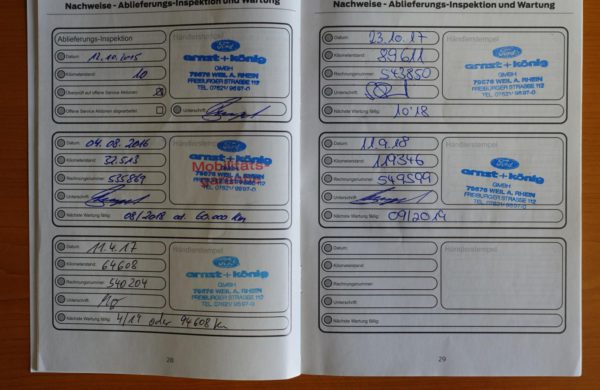 Nachweise - Ablieferungs-Inspektion und Wartung
Ablieferungs-Inspektion
Händlerstempel
Datum 12.10.2015
Kilometerstand: 10
Überprüft auf offene Service Aktionen
Offene Service Aktionen abgearbeitet
Unterschrift
Ford
arnst+könig
GMBH
79576 WEIL A. RHEIN
FREIBURGER STRASSE 112
TEL. 07621/ 9597-0
Datum: 04.08.2016
Kilometerstand: 32.513
Rechnungsnummer: 535869
Unterschrift:
Nächste Wartung fällig: 08/2018 od. 60.000 km
Händlerstempel
Ford
arnst+könig
Mobilitäts
GMBH
79576 WEIL A. RHEIN
Datum: 11.4.17
Kilometerstand: 64608
Rechnungsnummer: 540204
Unterschrift:
Nächste Wartung fällig: 4/19 oder 94608 km
Händlerstempel
Ford
arnst+könig
GMBH
79576 WEIL A. RHEIN
FREIBURGER STRASSE 112
TEL. 07621/ 9597-0
28
Nachweise - Ablieferungs-Inspektion und Wartung
Datum: 23.10.17
Kilometerstand: 89611
Rechnungsnummer: 543850
Unterschrift:
Nächste Wartung fällig: 10'18
Händlerstempel
Ford
arnst+könig
GMBH
79576 WEIL A. RHEIN
FREIBURGER STRASSE 112
TEL. 07621/ 9597-0
Datum: 11.9.18
Kilometerstand: 119346
Rechnungsnummer: 549599
Unterschrift:
Nächste Wartung fällig: 09/2019
Händlerstempel
Ford
arnst+könig
GMBH
79576 WEIL A. RHEIN
FREIBURGER STRASSE 112
TEL. 07621/ 9597-0
Datum:
Kilometerstand:
Rechnungsnummer:
Unterschrift:
Nächste Wartung fällig:
Händlerstempel
29